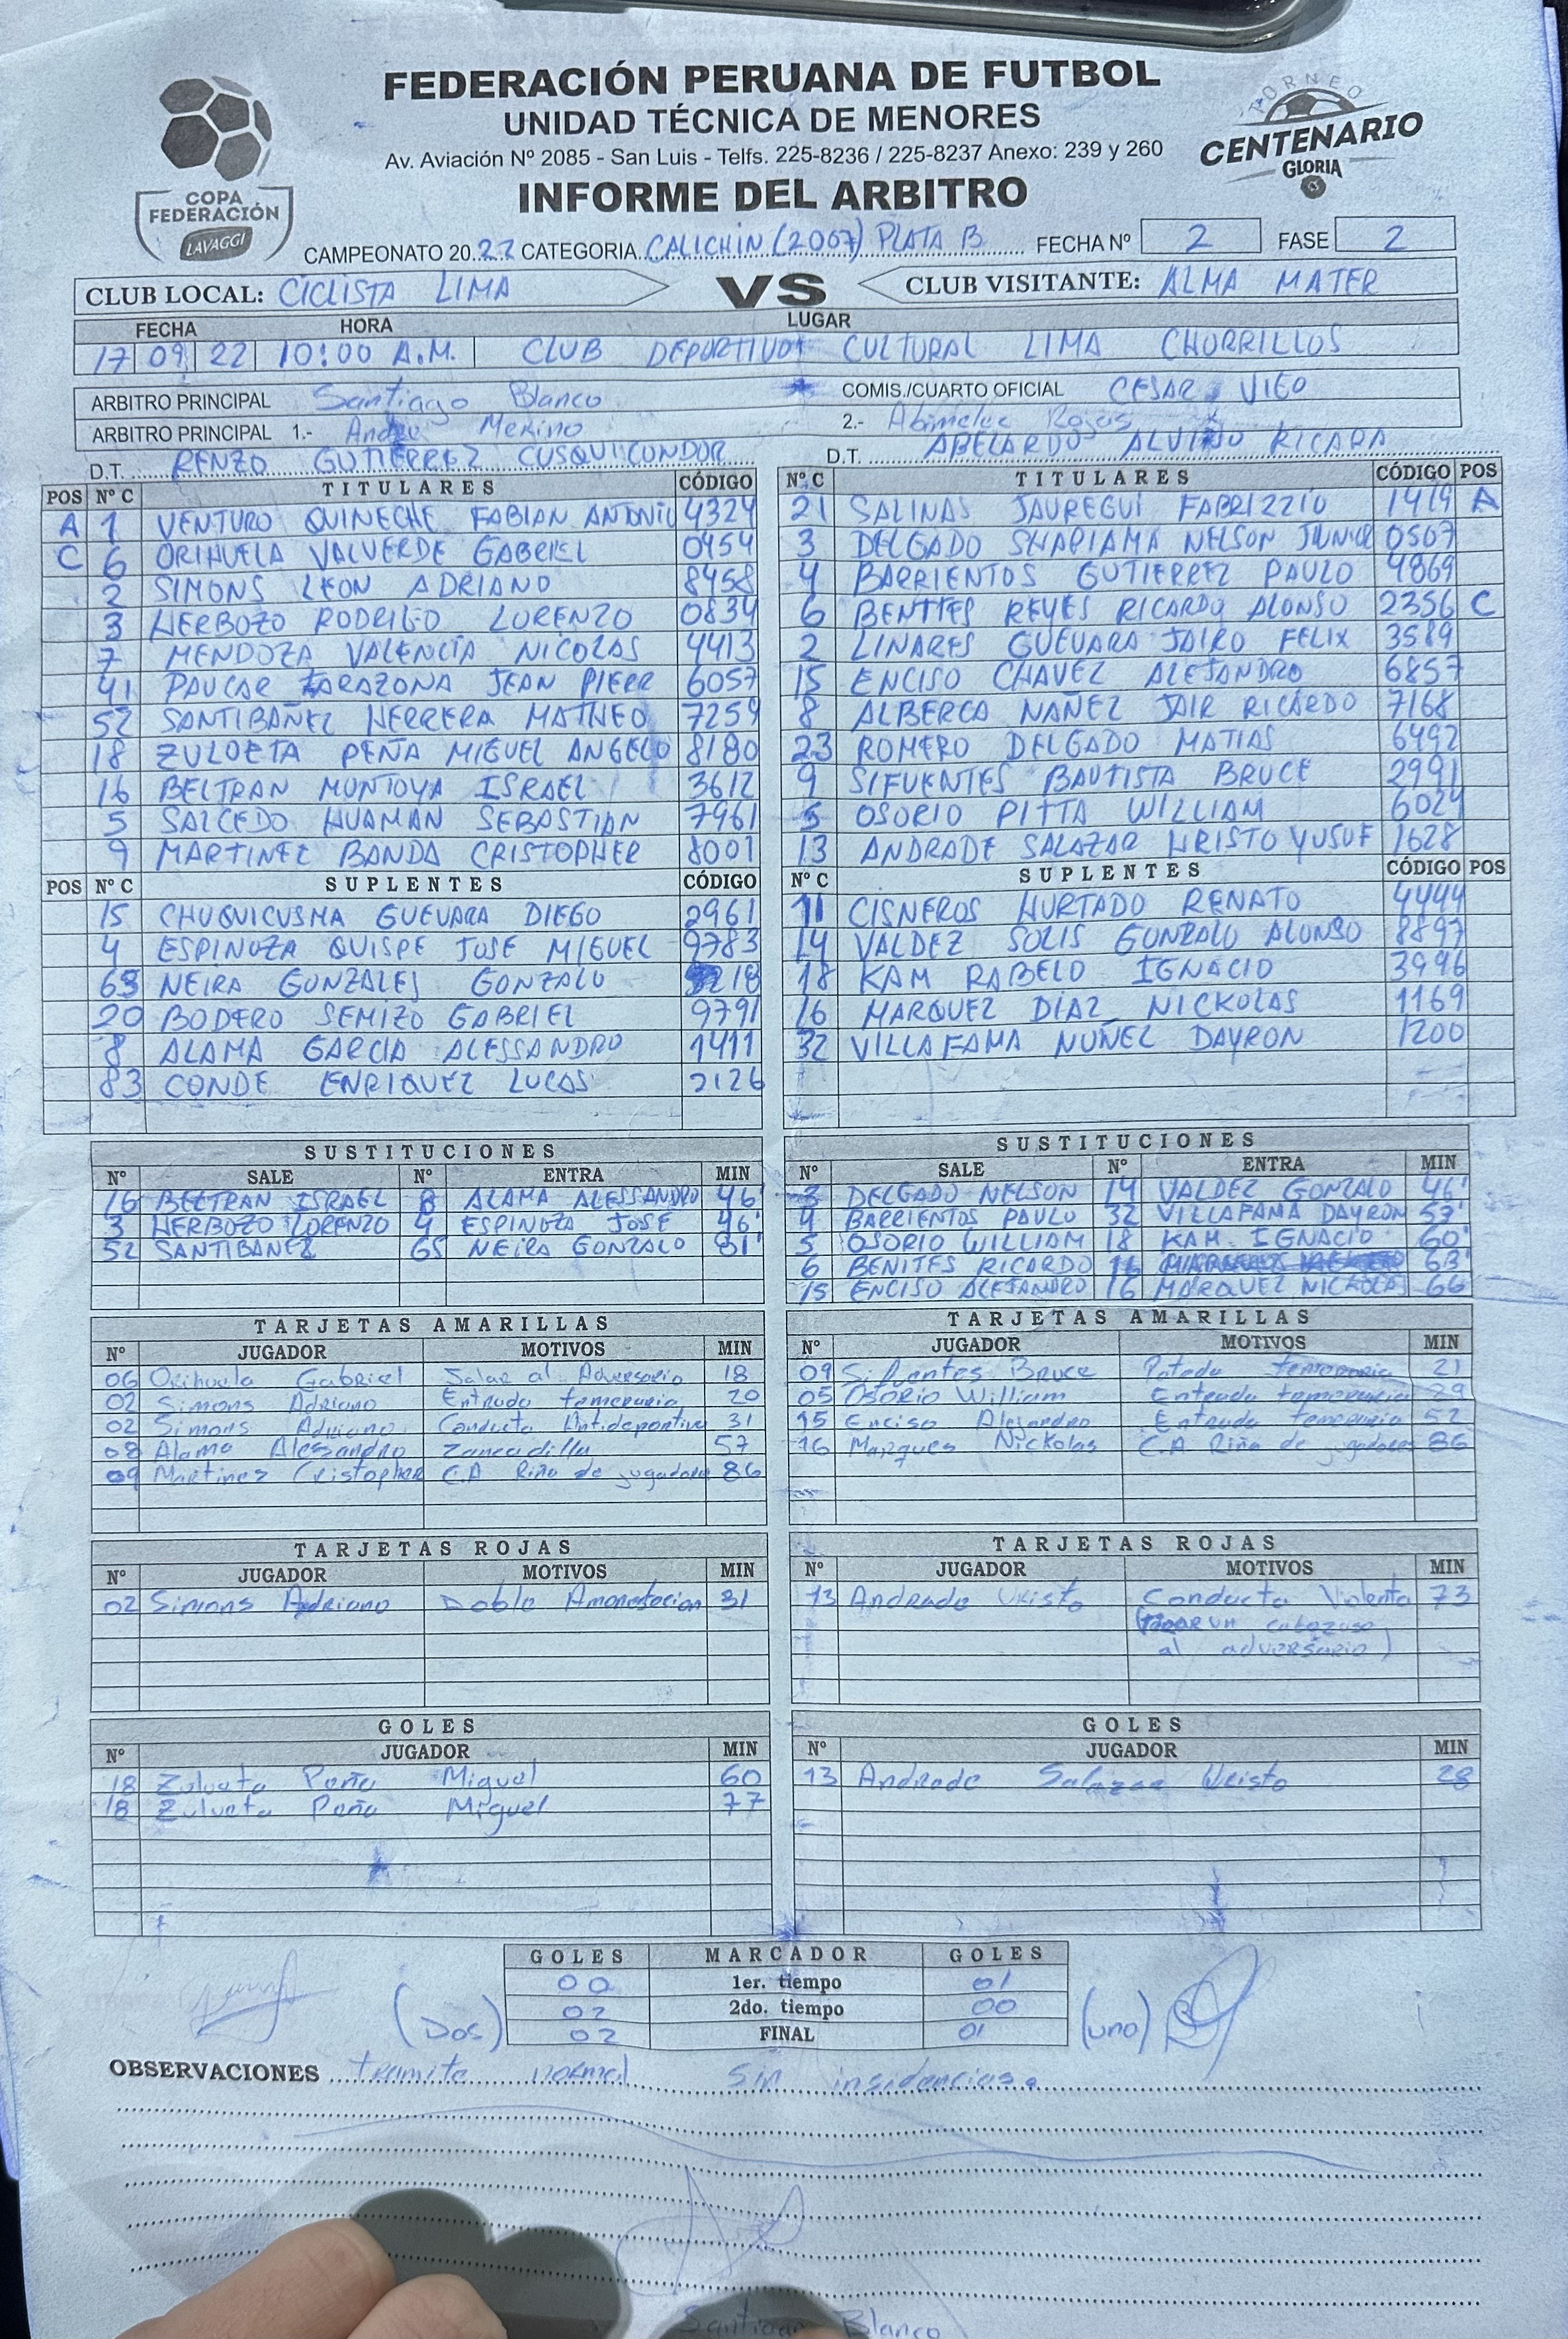 FEDERACIÓN PERUANA DE FUTBOL
UNIDAD TÉCNICA DE MENORES
Av. Aviación Nº 2085 - San Luis - Telfs. 225-8236 / 225-8237 Anexo: 239 y 260
INFORME DEL ARBITRO
COPA
FEDERACIÓN
LAVAGGI
TORNEO
CENTENARIO
GLORIA
CAMPEONATO 20.22 CATEGORIA CALICHIN (2007) PLATA B FECHA Nº 2 FASE 2
CLUB LOCAL: CICLISTA LIMA VS CLUB VISITANTE: ALMA MATER
FECHA HORA LUGAR
17 09 22 10:00 A.M. CLUB DEPORTIVO CULTURAL LIMA CHORRILLOS
ARBITRO PRINCIPAL Santiago Blanco COMIS./CUARTO OFICIAL CESAR VIGO
ARBITRO PRINCIPAL 1.- Merino 2.- Abimelec Rojas
D.T. RENZO GUTIERREZ CUSQUICONDOR D.T. ABELARDO RICARA
POS Nº C TITULARES CÓDIGO
A 1 VENTURO QUINECHE FABIAN ANTONIO 4324
C 6 ORIHUELA VALVERDE GABRIEL 0454
2 SIMONS LEON ADRIANO 8458
3 HERBOZO RODRIGO LORENZO 0834
7 MENDOZA VALENCIA NICOLAS 4413
41 PAUCAR TARAZONA JEAN PIERR 6057
52 SANTIBAÑEZ HERRERA MATHEO 7259
18 ZULOETA PEÑA MIGUEL ANGELO 8180
16 BELTRAN MONTOYA ISRAEL 3612
5 SALCEDO HUAMAN SEBASTIAN 7961
9 MARTINEZ BANDA CRISTOPHER 8001
POS Nº C SUPLENTES CÓDIGO
15 CHUQUICUSMA GUEVARA DIEGO 2961
4 ESPINOZA QUISPE JOSE MIGUEL 9783
65 NEIRA GONZALES GONZALO
20 BODERO SEMIZO GABRIEL 9791
8 ALAMA GARCIA ALESSANDRO 1411
83 CONDE ENRIQUEZ LUCAS 2126
Nº C TITULARES CÓDIGO POS
21 SALINAS JAUREGUI FABRIZZIO 1419 A
3 DELGADO SHAPIAMA NELSON JUNIOR 0567
4 BARRIENTOS GUTIERREZ PAULO 4869
6 BENITES REYES RICARDO ALONSO 2356 C
2 LINARES GUEVARA JAIRO FELIX 3589
15 ENCISO CHAVEZ ALEJANDRO 6857
8 ALBERCA NAÑEZ JAIR RICARDO 7168
23 ROMERO DELGADO MATIAS 6492
9 SIFUENTES BAUTISTA BRUCE 2991
5 OSORIO PITTA WILLIAM 6024
13 ANDRADE SALAZAR URISTO YUSUF 1628
Nº C SUPLENTES CÓDIGO POS
11 CISNEROS HURTADO RENATO 4444
14 VALDEZ SOLIS GONZALO ALONSO 8897
18 KAM RABELO IGNACIO 3996
16 MARQUEZ DIAZ NICKOLAS 1169
32 VILLAFAMA NUÑEZ DAYRON 1200
SUSTITUCIONES
Nº SALE Nº ENTRA MIN
16 BELTRAN ISRAEL 8 ALAMA ALESSANDRO 46'
3 HERBOZO LORENZO 4 ESPINOZA JOSE 46'
52 SANTIBAÑEZ 65 NEIRA GONZALO 81'
SUSTITUCIONES
Nº SALE Nº ENTRA MIN
3 DELGADO NELSON 14 VALDEZ GONZALO 46'
4 BARRIENTOS PAULO 32 VILLAFAMA DAYRON 57'
5 OSORIO WILLIAM 18 KAM IGNACIO 60'
6 BENITES RICARDO 63'
15 ENCISO ALEJANDRO 16 MARQUEZ NICKOLAS 66
TARJETAS AMARILLAS
Nº JUGADOR MOTIVOS MIN
06 Orihuela Gabriel Salar al Adversario 18
02 Simons Adriano Entrada temeraria 20
02 Simons Adriano Conducta Antideportiva 31
08 Alama Alessandro Zancadilla 57
09 Martinez Cristopher C.A Riña de jugadores 86
TARJETAS AMARILLAS
Nº JUGADOR MOTIVOS MIN
09 Sifuentes Bruce Patada temeraria 21
05 Osorio William Entrada temeraria 29
15 Enciso Alejandro Entrada temeraria 52
16 Marques Nickolas C.A Riña de jugadores 86
TARJETAS ROJAS
Nº JUGADOR MOTIVOS MIN
02 Simons Adriano Doble Amonestacion 31
TARJETAS ROJAS
Nº JUGADOR MOTIVOS MIN
13 Andrade Uristo Conducta Violenta 73
UN cabezaso
al adversario)
GOLES
Nº JUGADOR MIN
18 Zulueta Peña Miguel 60
18 Zulueta Peña Miguel 77
GOLES
Nº JUGADOR MIN
13 Andrade Salazar Uristo 28
GOLES MARCADOR GOLES
00 1er. tiempo 01
02 2do. tiempo 00
(Dos) 02 FINAL 01 (uno)
OBSERVACIONES tramite normal sin insidencias.
Santiago Blanco